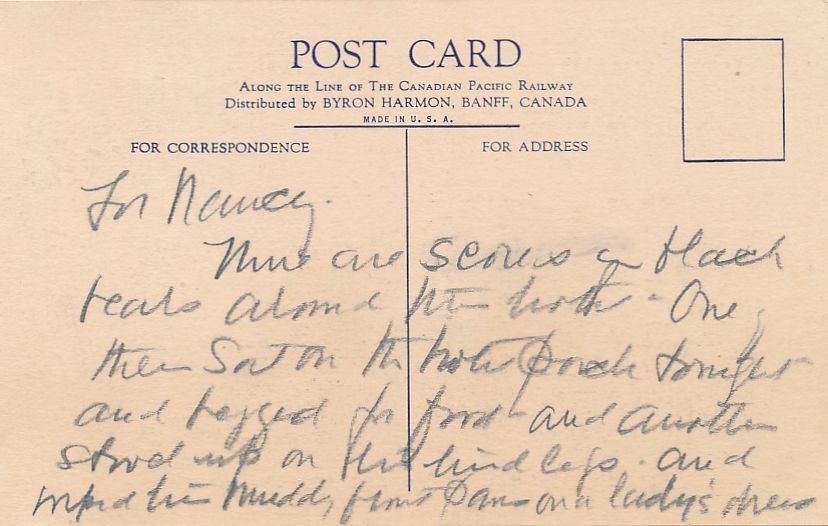 POST CARD
ALONG THE LINE OF THE CANADIAN PACIFIC RAILWAY
Distributed by BYRON HARMON, BANFF, CANADA
MADE IN U. S. A.
FOR CORRESPONDENCE
FOR ADDRESS
For Nancy.
There are scores of black
bears around this hotel - One of
them Sat on the hotel porch tonight
and begged for food - and another
stood up on his hind legs - and
wiped his muddy front paws on a lady's dress